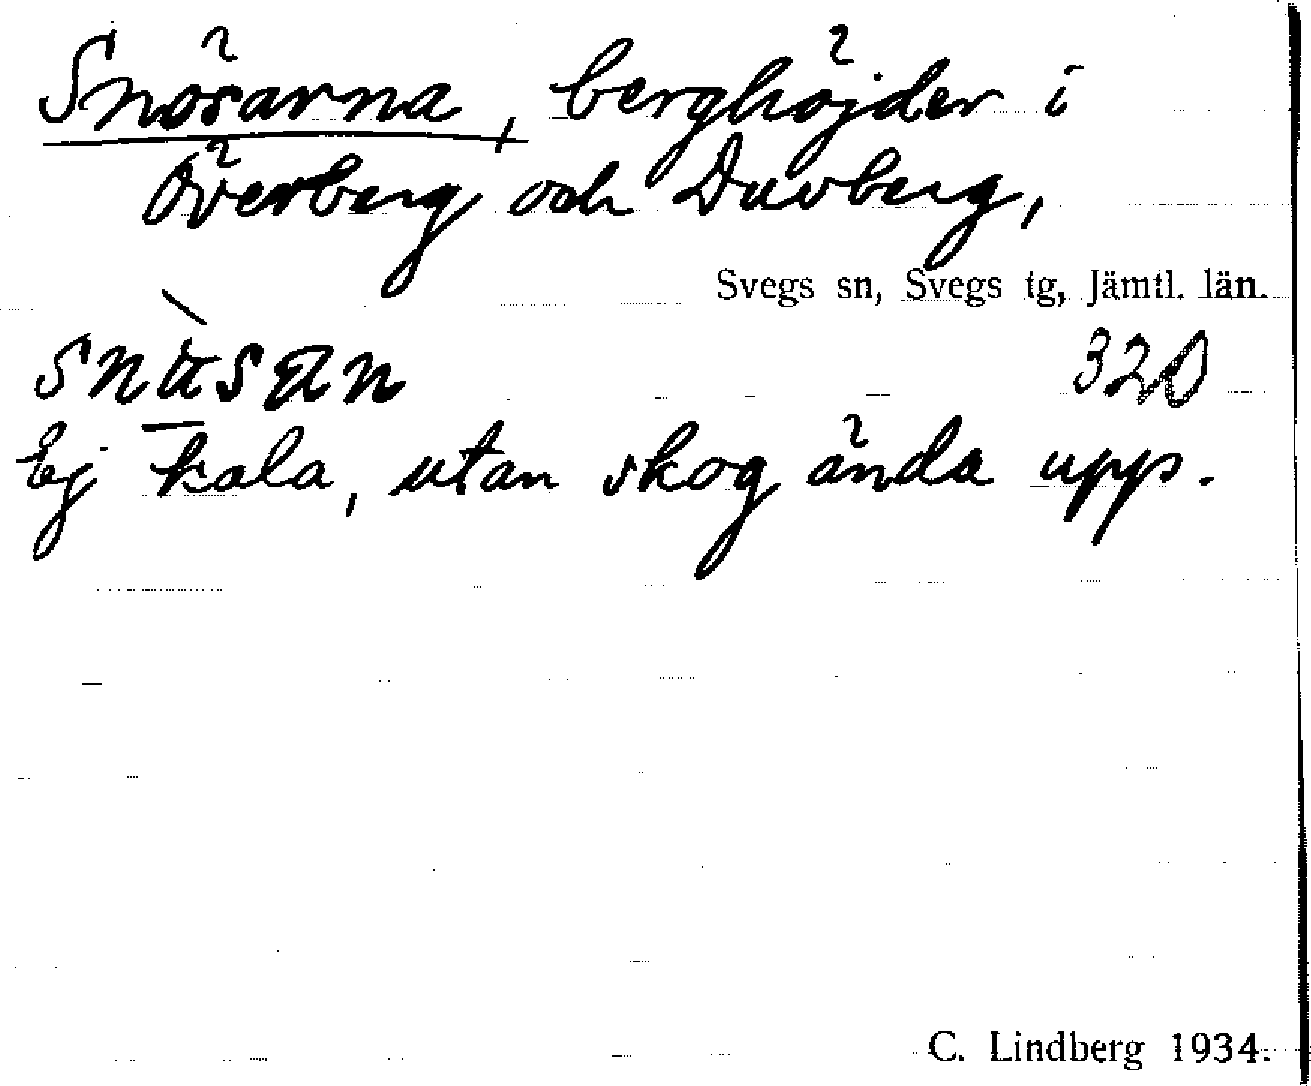 Snösarna, berghöjder i
Överberg och Duvberg,
Svegs sn, Svegs tg, Jämtl. län.
320
Ej kala, utan skog ända upp.
C. Lindberg 1934.